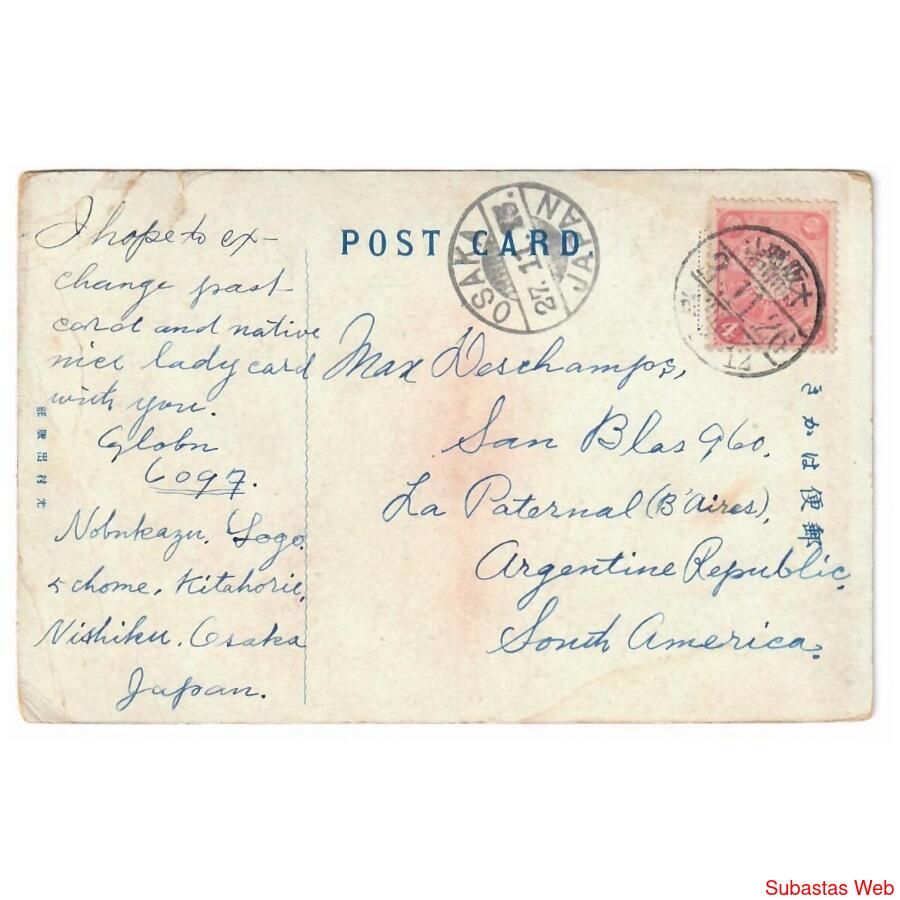 POST CARD.
OSAKA
27.11.13.
JAPAN
I hope to ex-
change past
card and native
nice lady card
with you.
Globn
6097.
Nobukazu. Sogo.
5 chome. Kitahorie,
Nishiku. Osaka
Japan.
Max Deschamps,
San Blas 960.
La Paternal (B'Aires),
Argentine Republic,
South America.
きかは便郵
Subastas Web